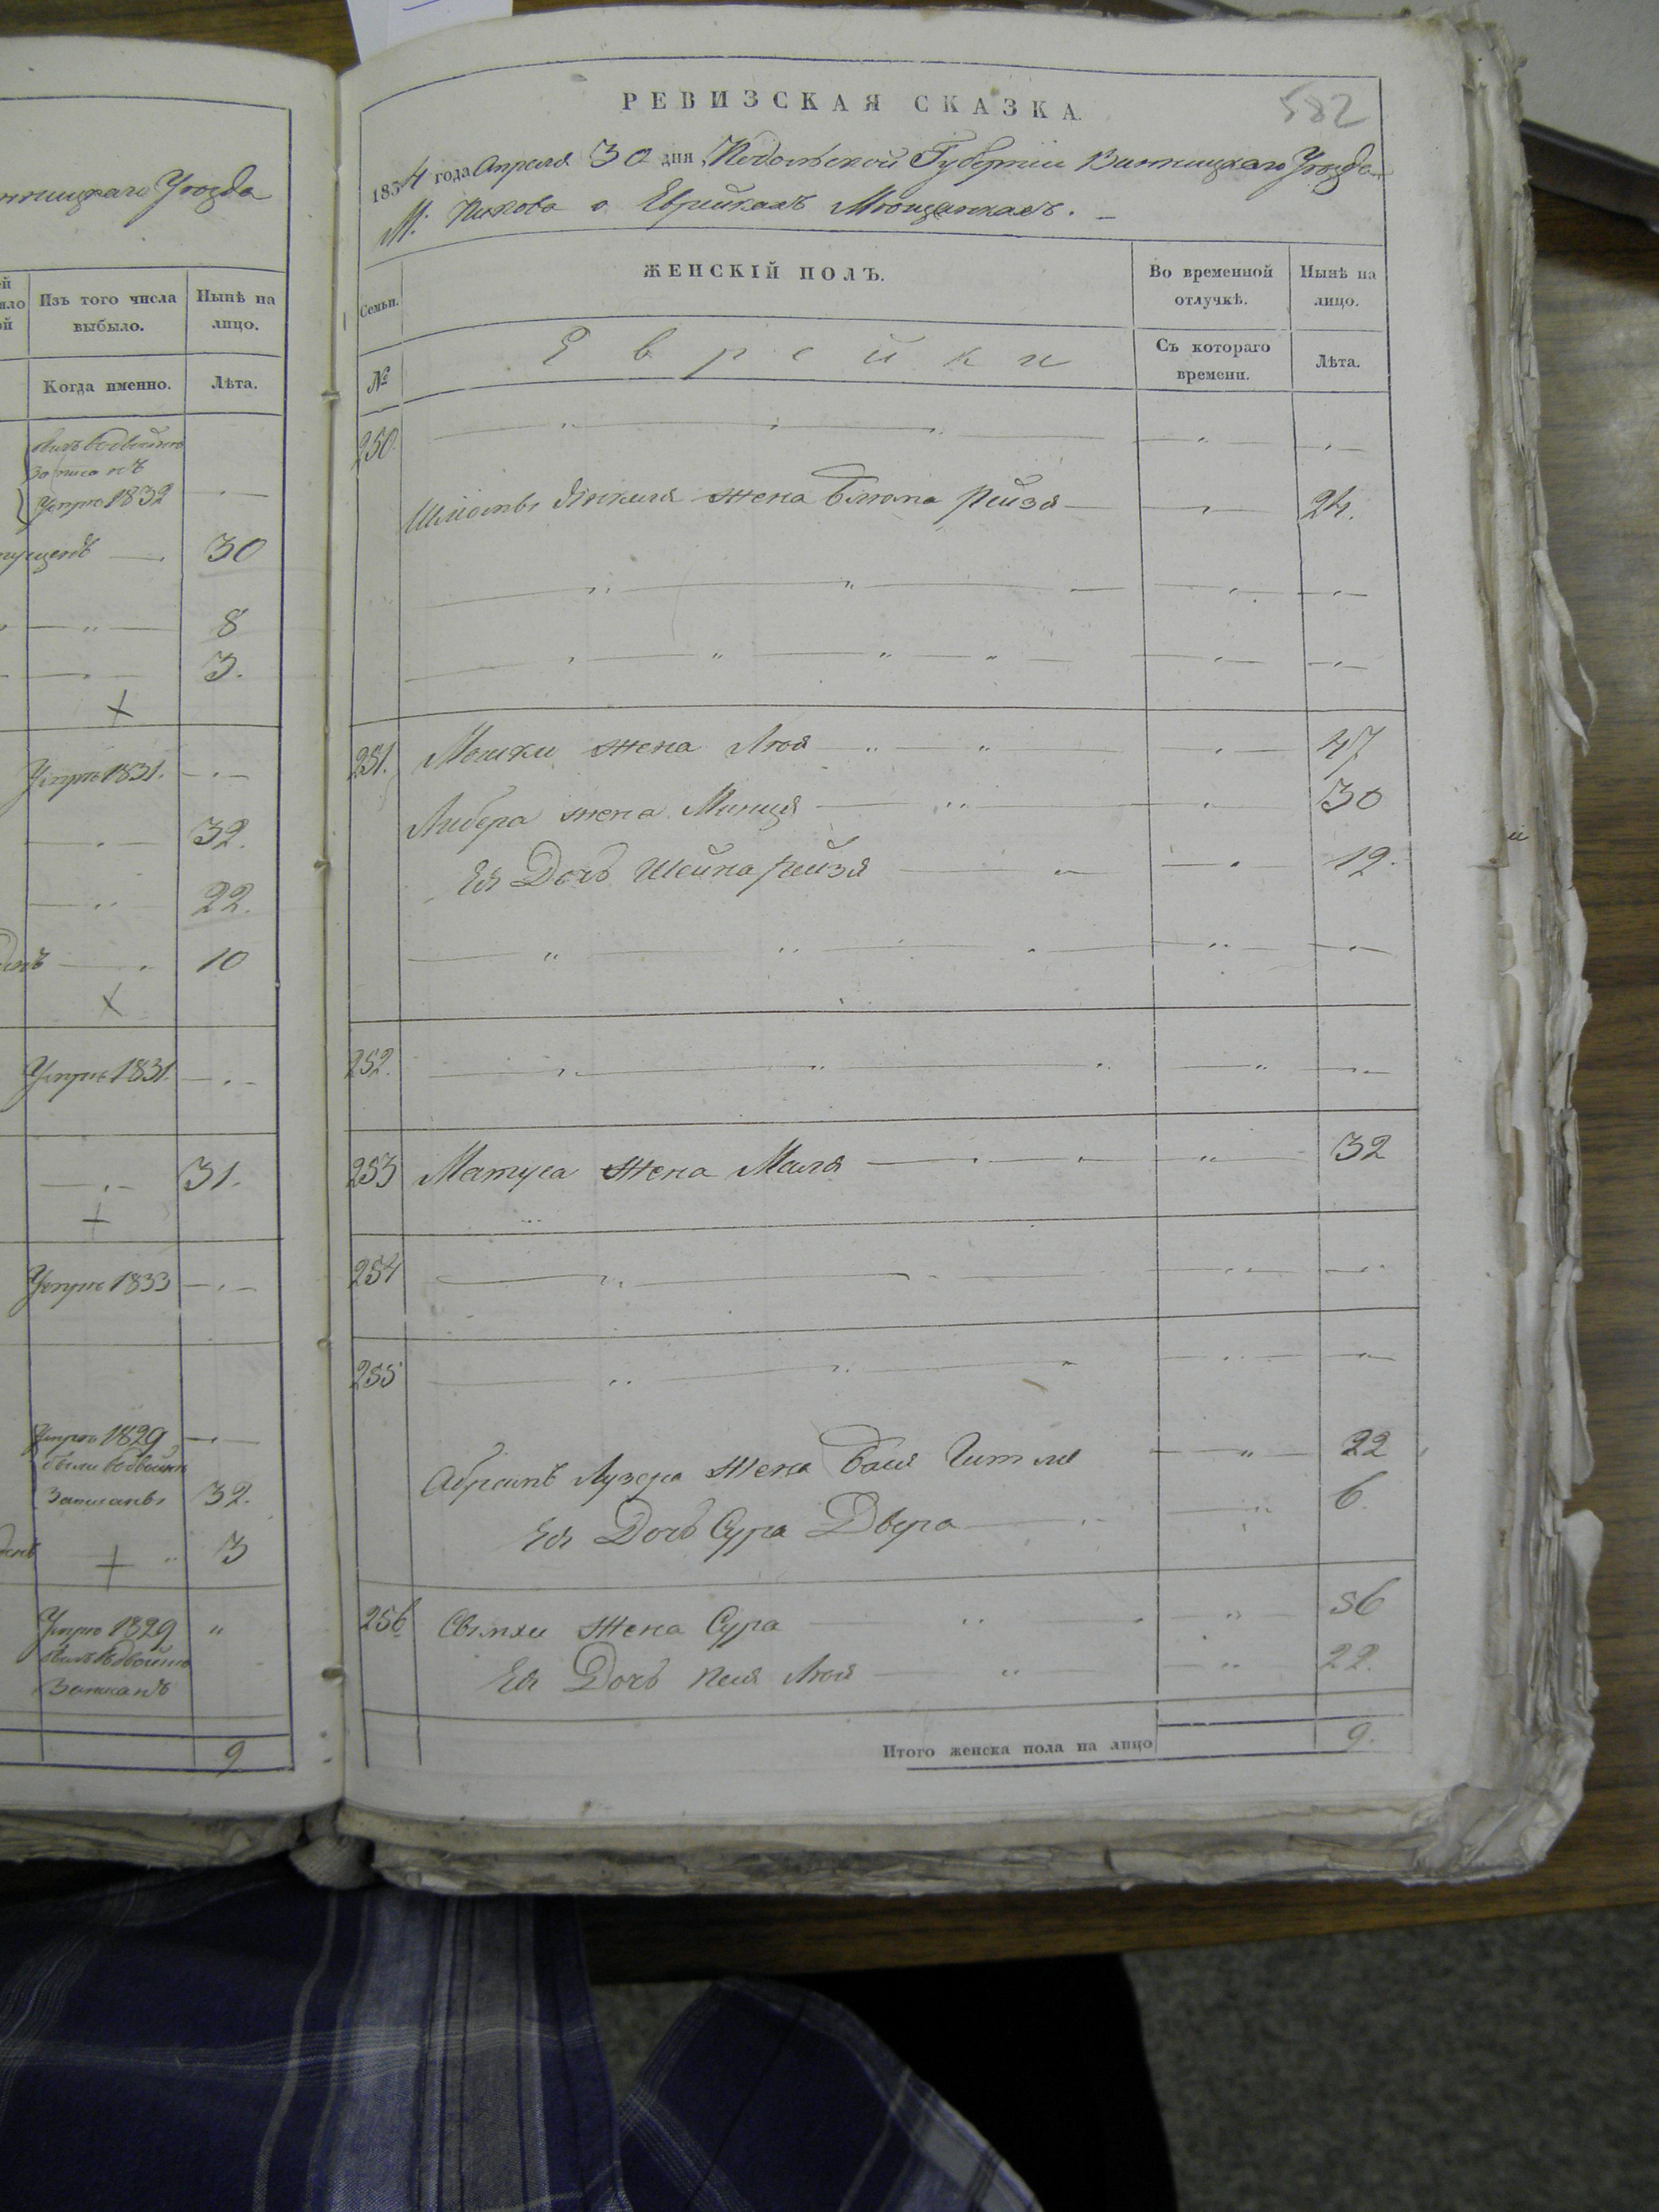 нницкаго Уѣзда
Изъ того числа
выбыло.
Нынѣ на
лицо.
Когда именно.
Лѣта.
записанъ
Умре 1832
30
8
3.
Умре 1831.
32.
22.
10
Умре 1831.
31.
Умре 1833
Умре 1829
были вдвойнѣ
Записаны
32.
3
Умре 1829
вдвойнѣ
Записанъ
9
582
РЕВИЗСКАЯ СКАЗКА.
1834 года Апреля 30 дня, Подольской Губерніи Винницкаго Уѣзда
М: Пикова о Еврейкахъ Мѣщанкахъ.
Семьи.
ЖЕНСКІЙ ПОЛЪ.
Во временной
отлучкѣ.
Нынѣ на
лицо.
№
Еврейки
Съ котораго
времени.
Лѣта.
250.
Янкеля жена Блюма Рейзя 24.
251. Мошки жена Лея 47
Либера жена Минця 30
Ея Дочь Шейна Рейзя 12.
252.
253 Матуса жена Маля 32
254
255
Абрамъ Лузера жена Бася Гитля 22
Ея Дочь Сура Двера 6.
256 Симхи жена Сура 56
Ея Дочь Песя Лея 22.
Итого женска пола на лицо 9.